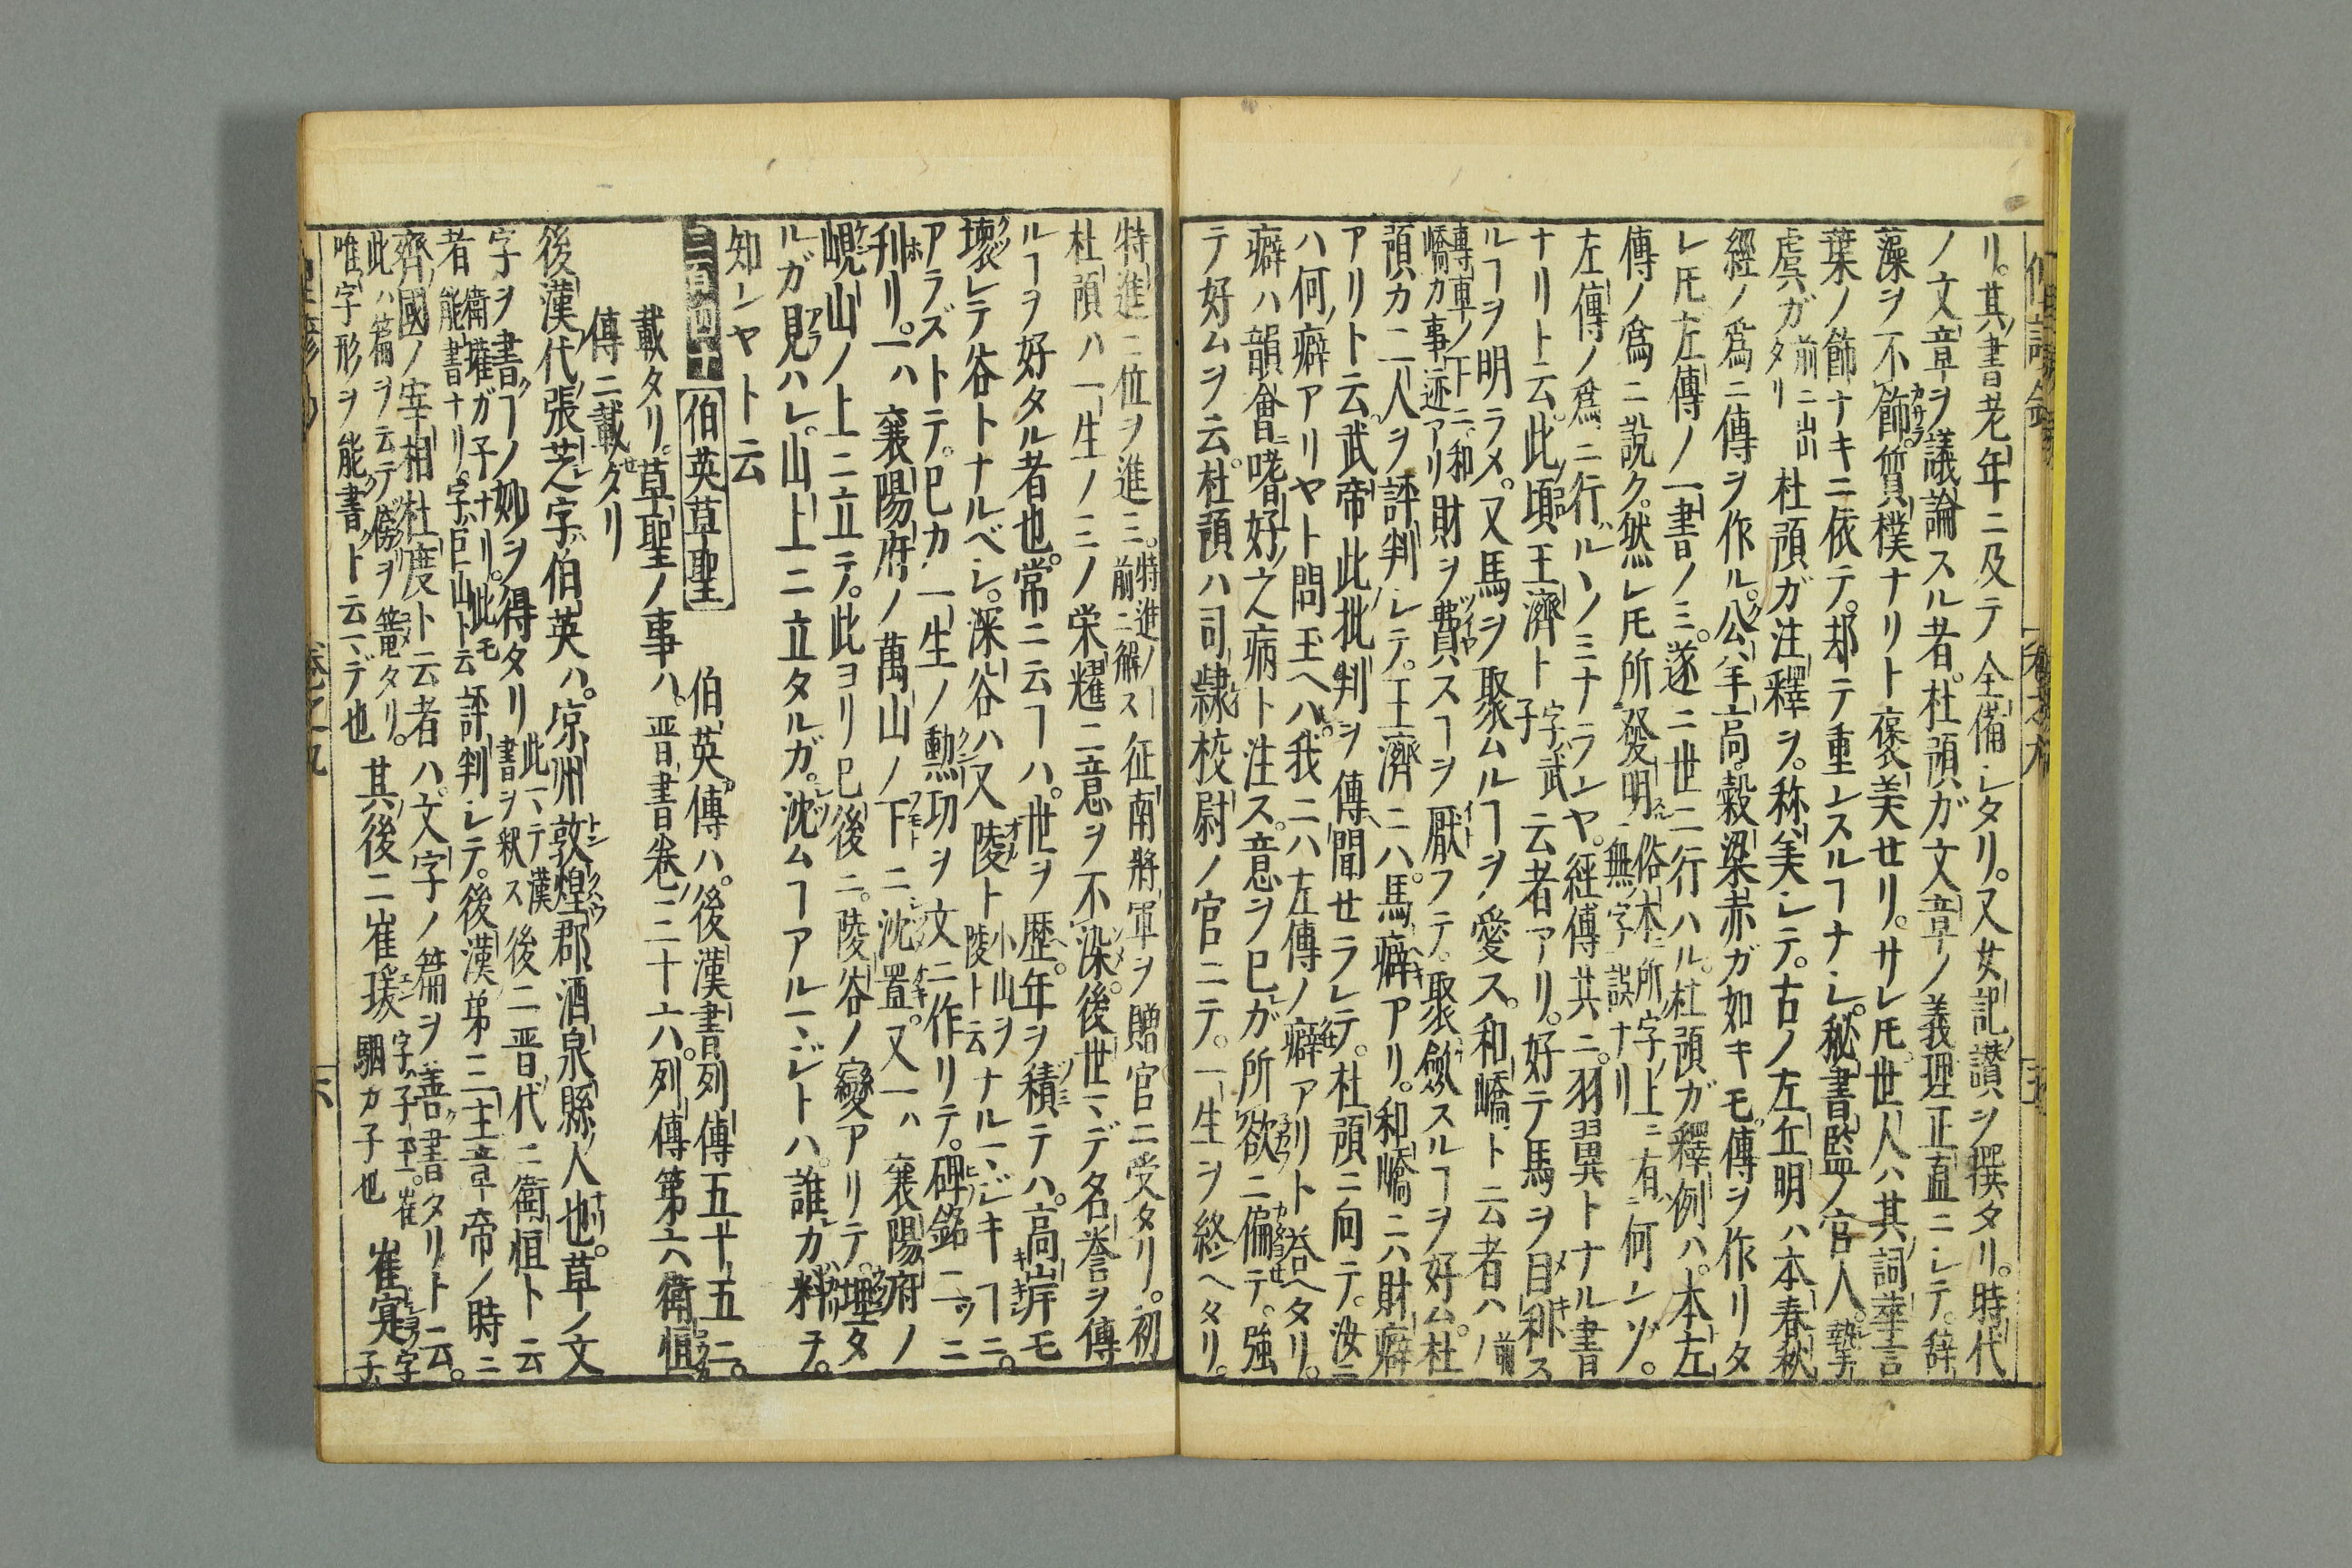 リ。其書老年ニ及テ全備シタリ。又女記讃ヲ撰タリ。時代
ノ文章ヲ議論スル者。杜預ガ文章ノ義理正直ニシテ。辞
藻ヲ不飾。質樸ナリト褒美セリ。サレ𪜈世人ハ其詞華言
葉ノ飾ナキニ依テ。却テ重シスルヿナシ。秘書監ノ官人。摯
虞ガ前ニ出タリ杜預ガ注釋ヲ。称美シテ。古ノ左丘明ハ本春秋
經ノ爲ニ傳ヲ作ル。公羊高。穀梁赤ガ如キモ傳ヲ作リタ
レ𪜈左傳ノ一書ノミ。遂ニ世ニ行ハル。杜預ガ釋例ハ。本左
傳ノ爲ニ説ク。然レ𪜈所發明俗本ニ所ノ字ノ上ニ有無ノ字誤ナリ何ンソ。
左傳ノ爲ニ行ルヽノミナランヤ。經傳共ニ。羽翼トナル書
ナリト云。此頃王濟ト字武子云者アリ。好テ馬ヲ目利ス
ルヿヲ明ラメ。又馬ヲ聚ムルヿヲ愛ス。和嶠ト云者ハ前ノ
專車ノ下ニ和嶠カ事迹アリ財ヲ費スヿヲ厭フテ。聚斂スルヿヲ好ム。杜
預カ二人ヲ評判シテ。王濟ニハ。馬癖アリ。和嶠ニハ財癖
アリト云。武帝此批判ヲ傳聞セラレテ。杜預ニ向テ。汝ニ
ハ何ノ癖アリヤト問玉ヘハ。我ニハ左傳ノ癖アリト答ヘタリ。
癖ハ韻會ニ嗜好之病ト注ス。意ヲ已ガ所欲ニ偏テ。強
テ好ムヲ云。杜預ハ司隷校尉ノ官ニテ。一生ヲ終ヘタリ。
特進ニ位ヲ進ミ。特進ノ前ニ解ス征南將軍ヲ贈官ニ受タリ。初
杜預ハ一生ノミノ栄耀ニ意ヲ不染。後世マデ名誉ヲ傳
ルヿヲ好タル者也。常ニ云ヿハ。世ヲ歴。年ヲ積テハ。高岸モ
壊レテ谷トナルベシ。深谷ハ又陵ト小山ヲ陵ト云ナルマジキヿニ。
アラズトテ。已カ一生ノ勲功ヲ文ニ作リテ。碑銘ニツニ
刋リ。一ハ襄陽府ノ萬山ノ下ニ沈置。又一ハ襄陽府ノ
峴山ノ上ニ立テ。此ヨリ已後ニ。陵谷ノ變アリテ。埋タ
ルガ見ハレ。山上ニ立タルガ。沈ムヿアルマジトハ。誰カ料ヲ。
知ンヤト云
二百四十 伯英草聖 伯英傳ハ。後漢書列傳五十五ニ。
載タリ。草聖ノ事ハ。晋書巻三十六。列傳第六衛恒
傳ニ載タリ
後漢代張芝字ハ伯英ハ。凉州敦煌郡酒泉縣ノ人也。草ノ文
字ヲ書ヿノ妙ヲ得タリ此マテ漢書ヲ釈ス後ニ晋代ニ衛恒ト云
者衛瓘ガ子ナリ。此モ能書ナリ。字巨山ト云評判シテ。後漢第三主章帝ノ時ニ
齊國ノ宰相杜度ト云者ハ。文字ノ篇ヲ善書タリト云。
此ハ篇ヲ云テ傍ヲ篭タリ。唯字形ヲ能書クト云マデ也其後ニ崔瑗字ハ子玉。崔駰カ子也崔寔字ハ子